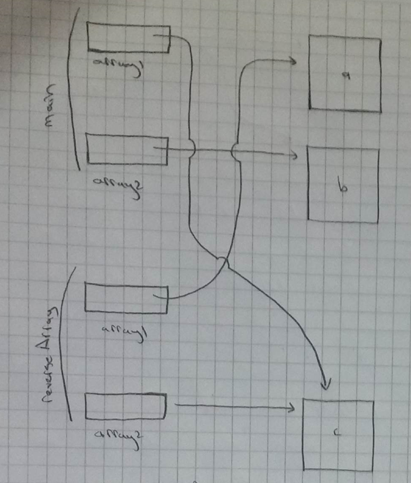 main
array1
a
array2
b
reverse Array
array1
array2
c